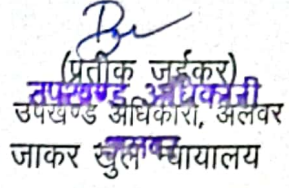 (प्रतीक जुईकर)
उपखण्ड अधिकारी
उपखण्ड अधिकारी, अलवर
अलवर
जाकर खुले न्यायालय